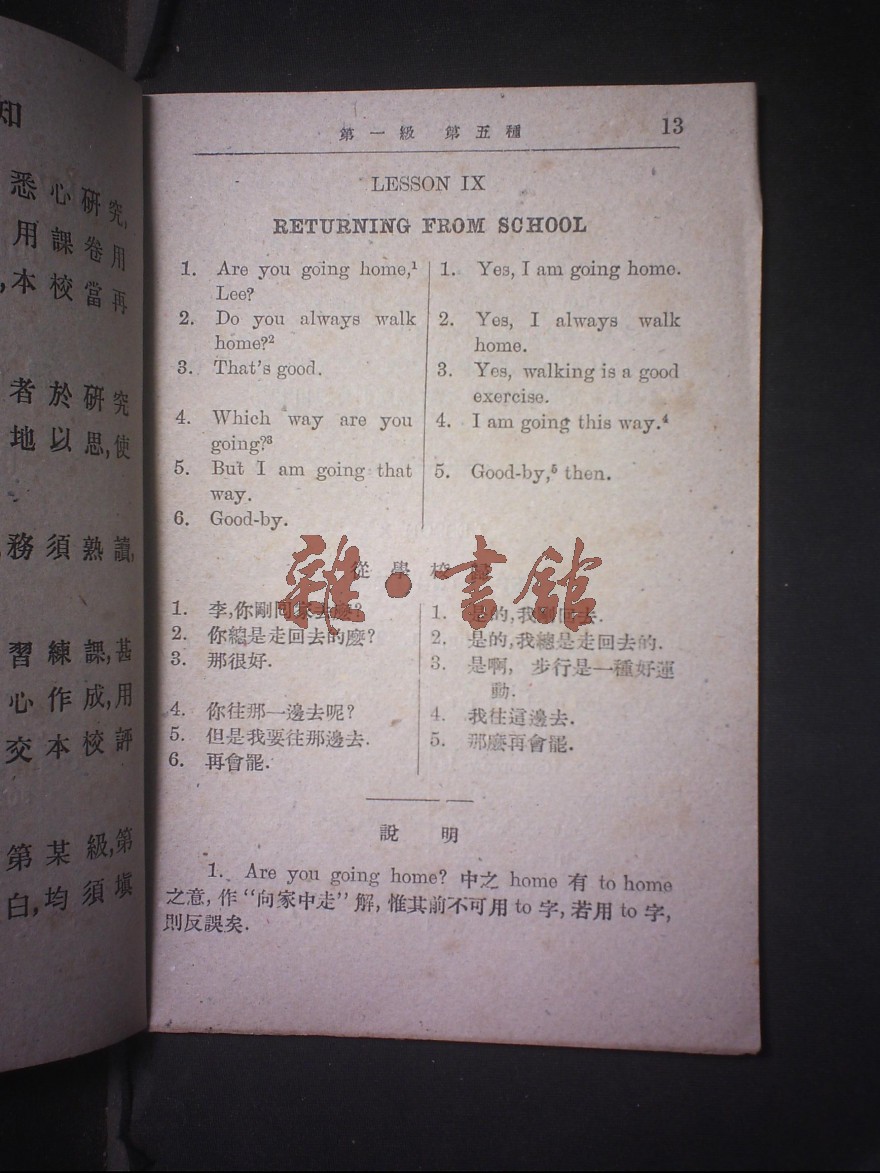 知
悉心研究,
用課卷用
,本校當再
者於研究
地以思,使
務須熟讀,
習練課,甚
心作成,用
交本校評
第某級,第
白,均須填
第一級 第五種 13
LESSON IX
RETURNING FROM SCHOOL
1. Are you going home,¹
Lee?
2. Do you always walk
home?²
3. That's good.
4. Which way are you
going?³
5. But I am going that
way.
6. Good-by.
1. Yes, I am going home.
2. Yes, I always walk
home.
3. Yes, walking is a good
exercise.
4. I am going this way.⁴
5. Good-by,⁵ then.
從學校
雜·書館
1. 李,你剛回家去麽?
2. 你總是走回去的麽?
3. 那很好.
4. 你往那一邊去呢?
5. 但是我要往那邊去.
6. 再會罷.
1. 是的,我剛回去.
2. 是的,我總是走回去的.
3. 是啊, 步行是一種好運
動.
4. 我往這邊去.
5. 那麽再會罷.
說 明
1. Are you going home? 中之 home 有 to home
之意, 作“向家中走”解, 惟其前不可用 to 字, 若用 to 字,
則反誤矣.